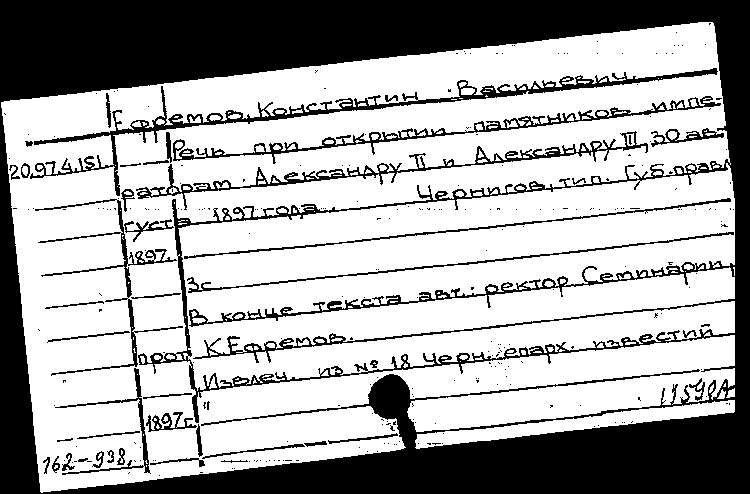 Ефремов, Константин Васильевич.
20.97.4.151 Речь при открытии памятников импе-
раторам Александру II и Александру III, 30 авг-
густа 1897 года. Чернигов, тип. Губ. правл
1897.
3с
В конце текста авт.: ректор Семинарии,
прот. К.Ефремов.
Извлеч. из № 18 Черн. епарх. известий
1897г. "
11590А
162-938.